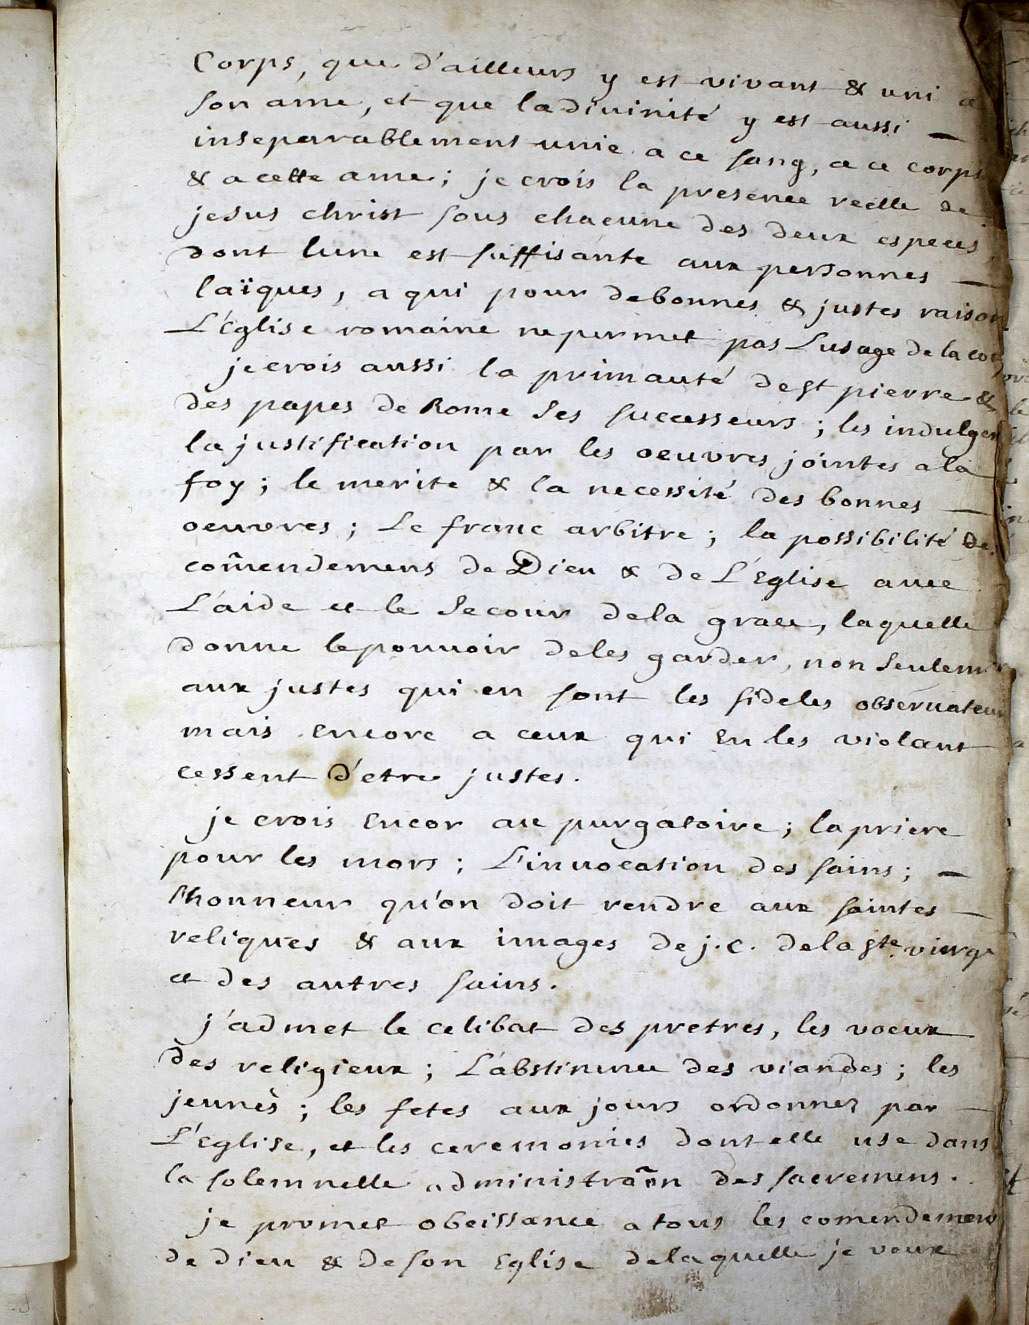 Corps, que d'ailleurs y est vivant & uni a
son ame, et que la divinité y est aussi —
inseparablement unie a ce sang, a ce corps
& a cette ame; je crois la presence reelle de
jesus christ sous chacune des deux especes,
dont lune est suffisante aux personnes —
laïques, a qui pour de bonnes & justes raison
L'Eglise romaine ne permet pas L'usage de la cou
je crois aussi la primauté de St pierre &
des papes de Rome ses successeurs; les indulgen
la justification par les oeuvres jointes a la
foy; le merite & la necessité des bonnes —
oeuvres; Le franc arbitre; la possibilité de
com̃endemens de Dieu & de L'Eglise avec
L'aide et le secour de la grace, laquelle
donne le pouvoir de les garder, non seulemt
aux justes qui en sont les fideles observateur
mais encore a ceux qui en les violant
cessent d'etre justes.
je crois encor au purgatoire; la priere
pour les mors; L'invocation des sains; —
l'honneur qu'on doit rendre aux saintes —
reliques & aux images de j. c. de la Ste. vierge
et des autres sains.
j'admet le celibat des pretres, les voeux
des religieux; L'abstinence des viandes; les
jeunès; les fetes aux jours ordonnez par —
L'Eglise, et les ceremonies dont elle use dans
la solemnelle administraõn des sacremens.
je promet obeissance a tous les comendemens
de Dieu & de son Eglise de laquelle je veux